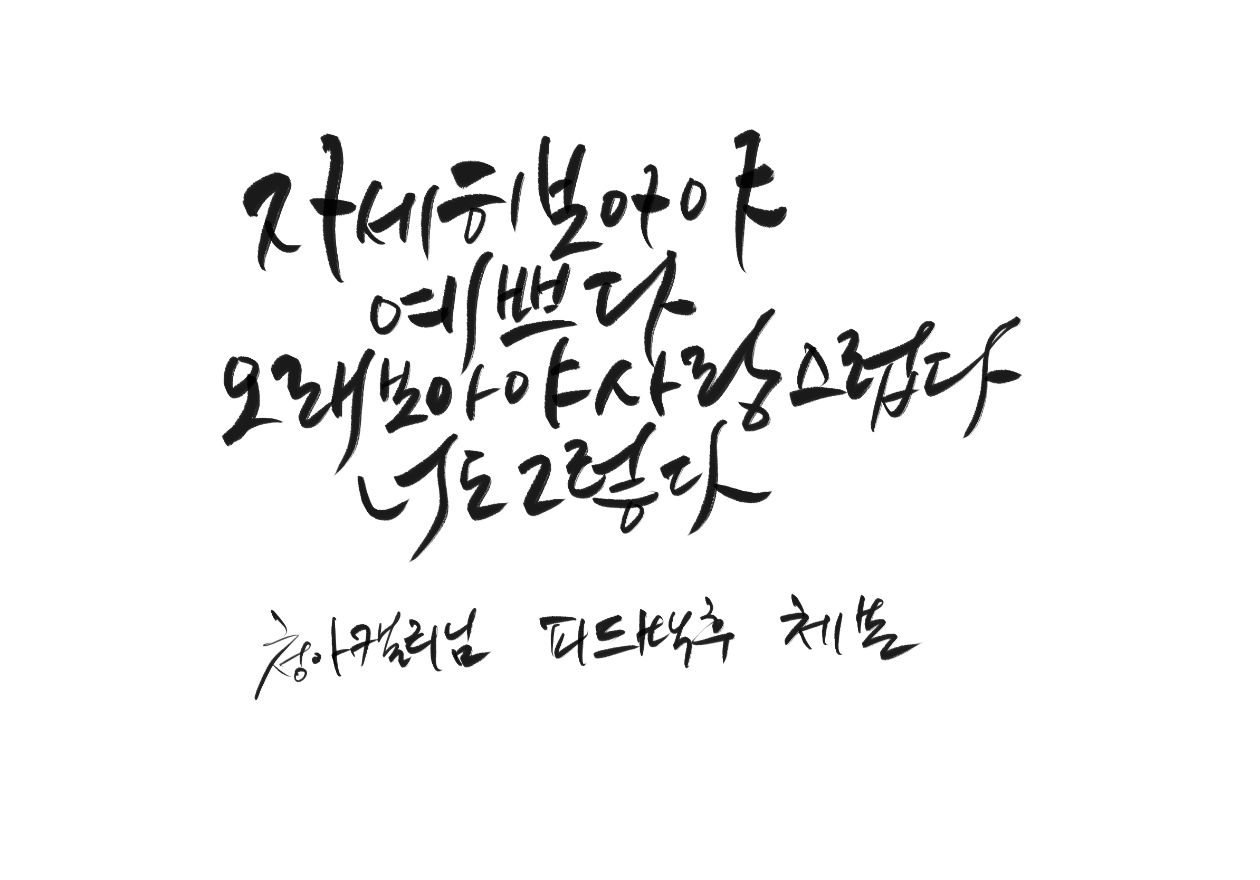 자세히보아야
예쁘다
오래보아야사랑스럽다
너도그렇다
청아캘리님 피드백후 체본